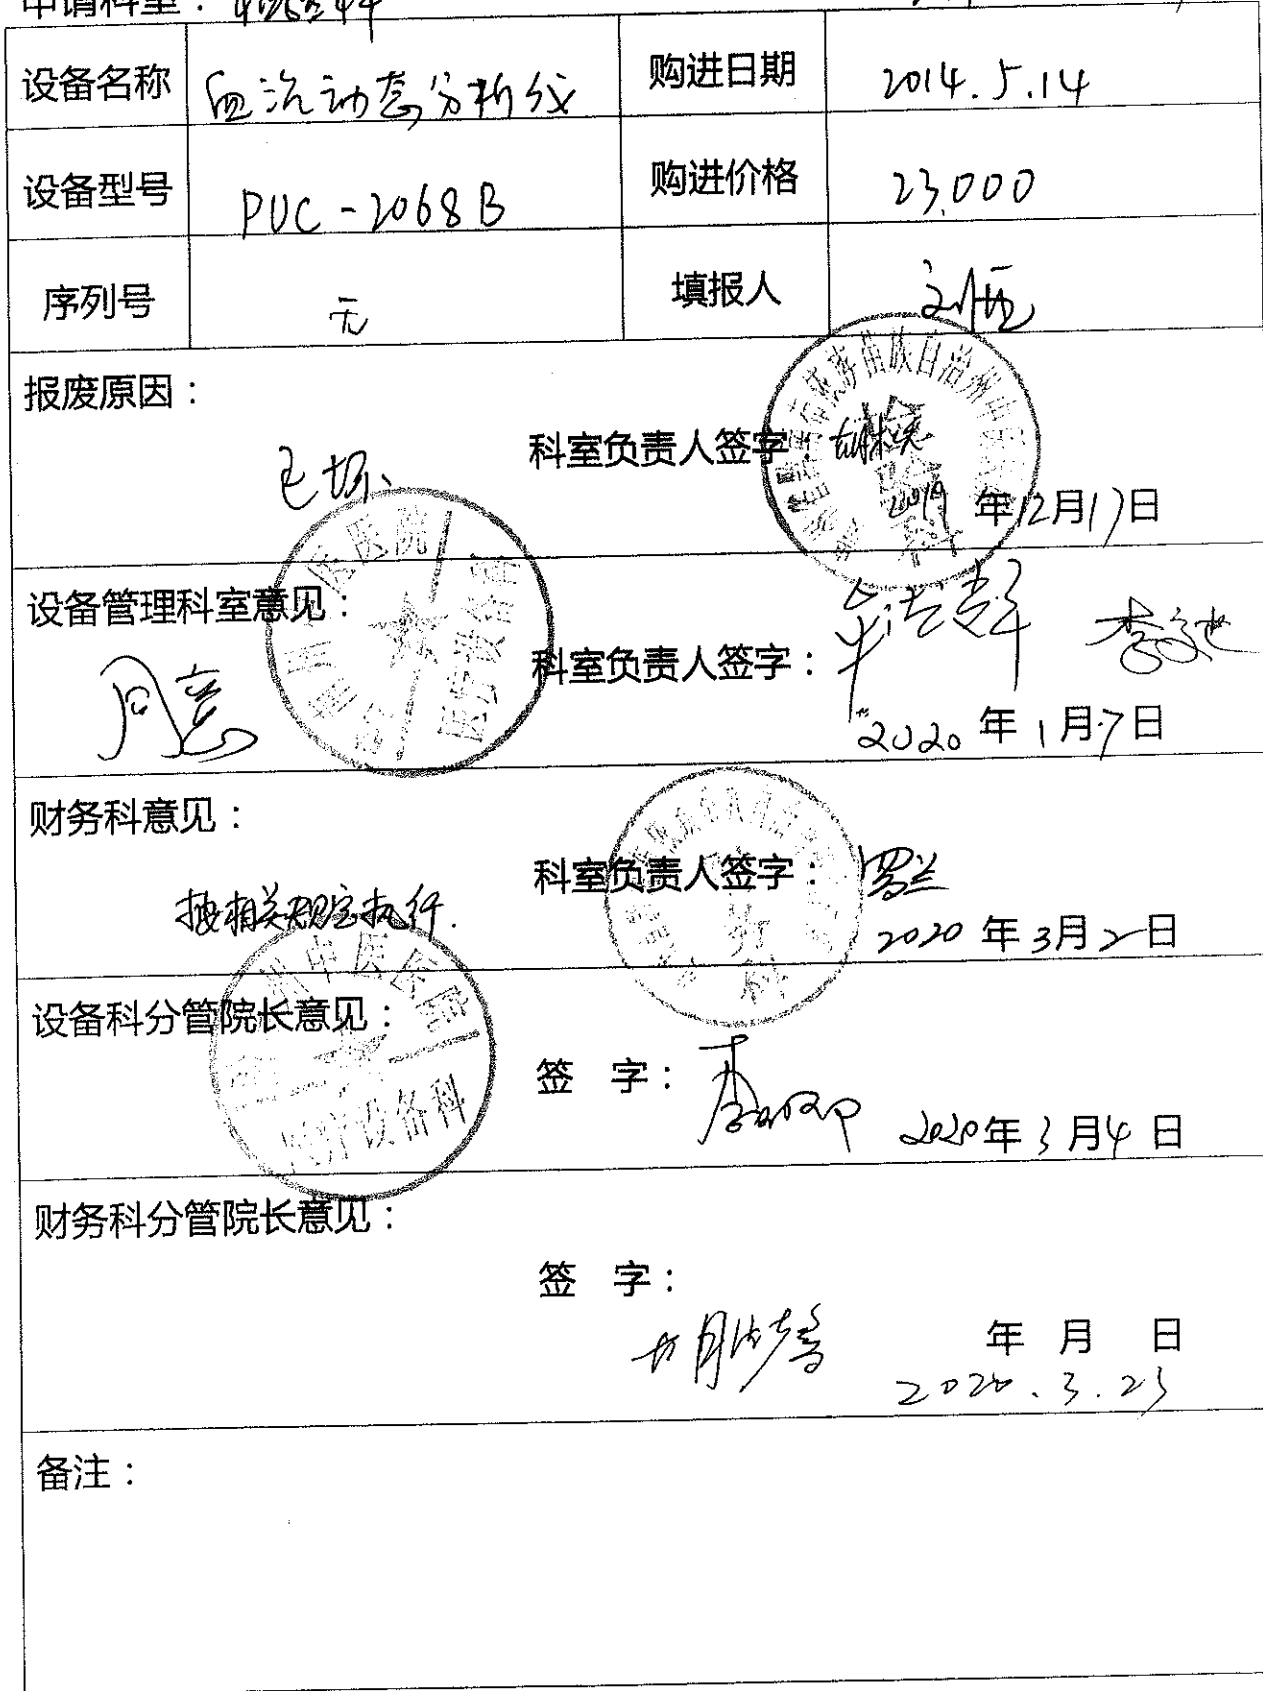 申请科室：检验科
设备名称 血沉动态分析仪 购进日期 2014.5.14
设备型号 PUC-2068B 购进价格 23,000
序列号 无 填报人
报废原因：
已坏、 科室负责人签字：
2019年12月17日
设备管理科室意见：
同意 科室负责人签字：
2020年1月7日
财务科意见：
科室负责人签字：
按相关规定执行.
2020年3月2日
州中医医院
医疗设备科
设备科分管院长意见：
签 字：
2020年3月4日
财务科分管院长意见：
签 字：
年 月 日
2020.3.23
备注：